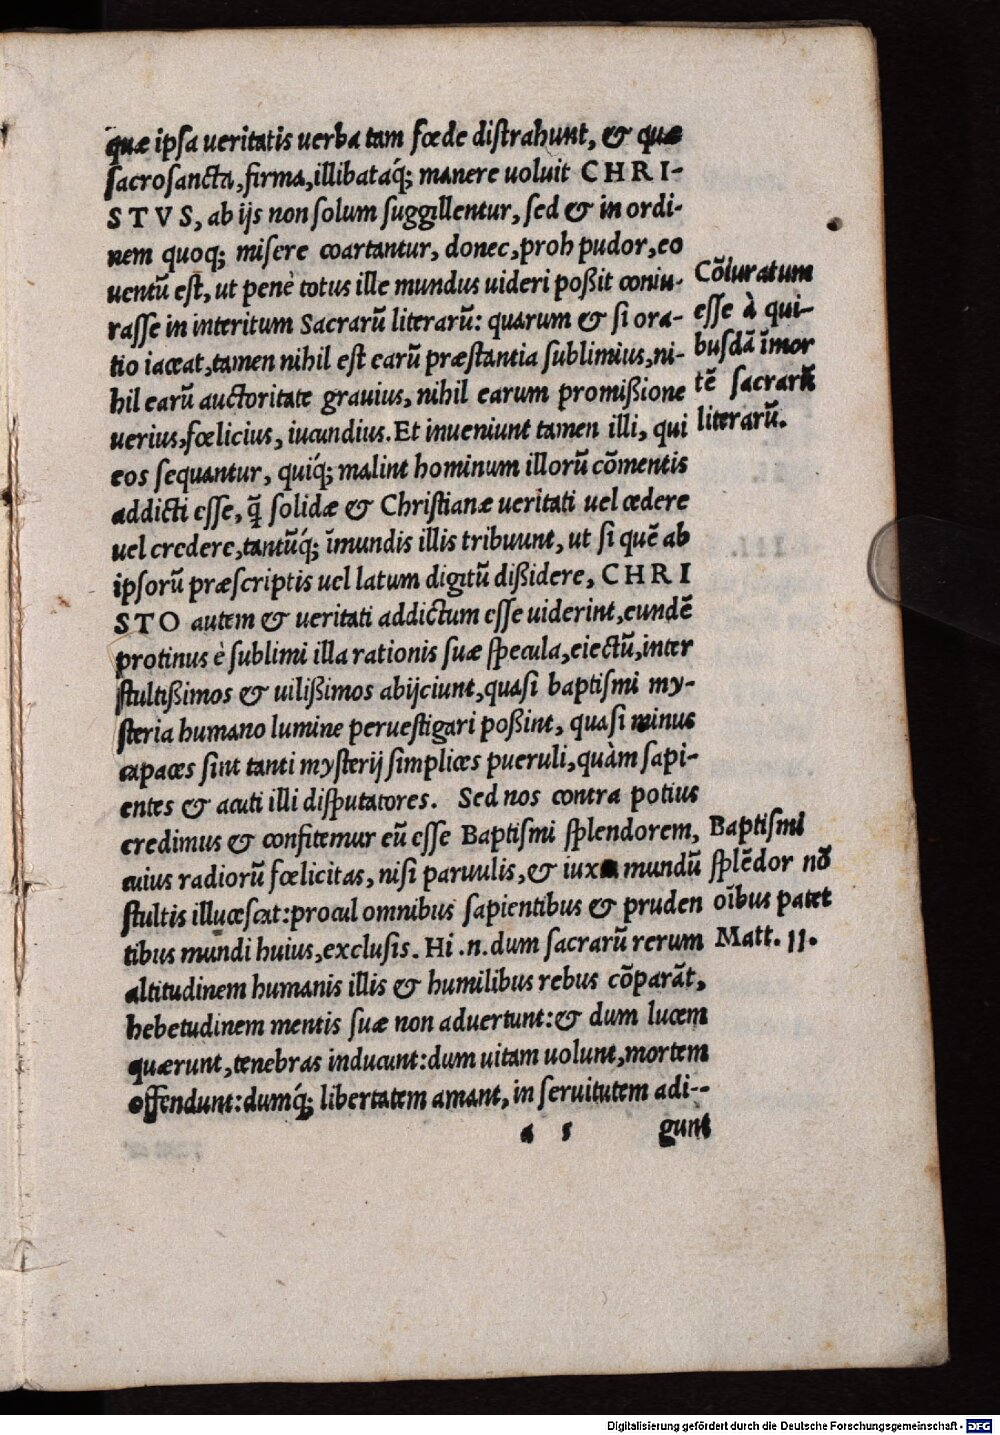 quæ ipſa ueritatis uerba tam fœde diſtrahunt, & quæ
ſacroſancta, firma, illibataq́; manere uoluit CHRI-
STVS, ab ijs non ſolum ſuggillentur, ſed & in ordi-
nem quoq; miſere coartantur, donec, proh pudor, eo
uentũ eſt, ut penè totus ille mundus uideri poßit coniu-
raſſe in interitum Sacrarũ literarũ: quarum & ſi ora-
tio iaceat, tamen nihil eſt earũ præſtantia ſublimius, ni-
hil earũ auctoritate grauius, nihil earum promißione
uerius, fœlicius, iucundius. Et inueniunt tamen illi, qui
eos ſequantur, quiq́; malint hominum illorũ cõmentis
addicti eſſe, q̃ ſolidæ & Chriſtianæ ueritati uel cedere
uel credere, tantũq́; ĩmundis illis tribuunt, ut ſi quẽ ab
ipſorũ præſcriptis uel latum digitũ dißidere, CHRI
STO autem & ueritati addictum eſſe uiderint, eundẽ
protinus è ſublimi illa rationis ſuæ ſpecula, eiectũ, inter
ſtultißimos & uilißimos abijciunt, quaſi baptiſmi my-
ſteria humano lumine perueſtigari poßint, quaſi minus
capaces ſint tanti myſterij ſimplices pueruli, quàm ſapi-
entes & acuti illi diſputatores. Sed nos contra potius
credimus & confitemur eũ eſſe Baptiſmi ſplendorem,
cuius radiorũ fœlicitas, niſi paruulis, & iuxta mundũ
ſtultis illuceſcat: procul omnibus ſapientibus & pruden
tibus mundi huius, excluſis. Hi .n. dum ſacrarũ rerum
altitudinem humanis illis & humilibus rebus cõparãt,
hebetudinem mentis ſuæ non aduertunt: & dum lucem
quærunt, tenebras inducunt: dum uitam uolunt, mortem
offendunt: dumq́; libertatem amant, in ſeruitutem adi-
a 5 gunt
Cõiuratum
eſſe à qui-
buſdã ĩmor
tẽ ſacrarũ
literarũ.
Baptiſmi
ſplẽdor nõ
oĩbus patet
Matt. 11.
Digitalisierung gefördert durch die Deutsche Forschungsgemeinschaft - DFG